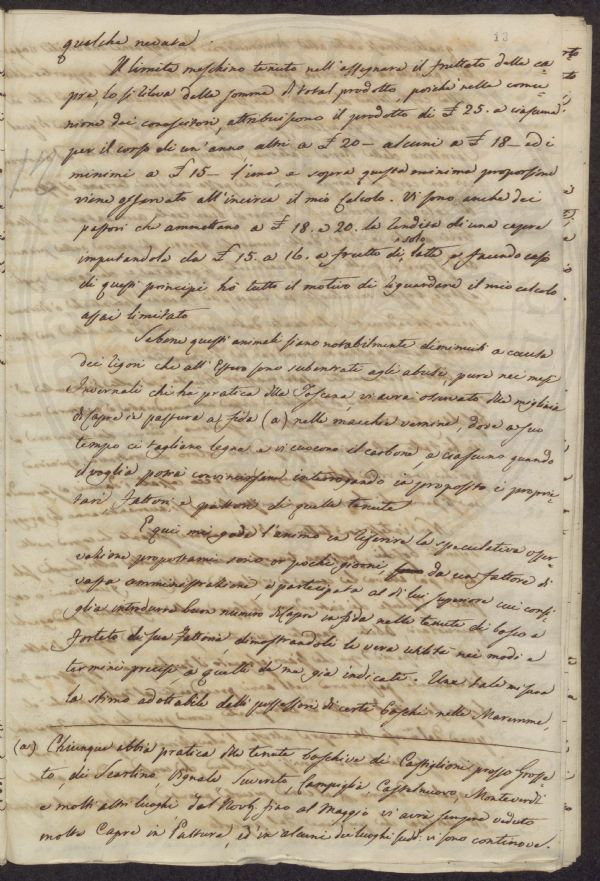 13
qualche veduta.
Il limite meschino tenuto nell'assegnare il fruttato delle ca=
pre, lo si rileva dalla somma di total prodotto, poiché nella comu=
nione dei conoscitori, attribuiscono il prodotto di £ 25. a ciascuna
per il corso di un'anno altri a £ 20 – alcuni a £ 18 – ed i
minimi a £ 15 – l'una e sopra questa minima proporzione
viene osservato all'incirca il mio calcolo. Vi sono anche dei
pastori che ammettano a £ 18. a 20. la rendita di una capra
imputandola da £ 15. a 16. a frutto di solo latte, e facendo caso
di questi principi ho tutto il motivo di riguardare il mio calcolo
assai limitato
Sebene questi animali siano notabilmente diminuiti a causa
dei rigori che all' sono subentrati agli abusi, pure nei mesi
Invernali chi ha pratica della Toscana, vi avrà osservato delle migliaia
di Capre in pastura a fida (a) nelle macchie , dove a suo
tempo ci tagliano legna e vi cuocono il carbone, e ciascuno quando
il voglia potrà convincersene interrogando in proposito i proprie=
tari, fattori e pastori di quelle tenute
E qui mi gode l'animo in riferire la speculativa osser=
vazione propostami sono or pochi giorni, da un fattore di
vasta amministrazione, e partecipata al di lui superiore cui consi=
glia introdurre buon numero di Capre in fida nelle tenute di bosco a
forteto di sua fattoria, dimostrandoli le vere utilità nei modi e
termini precisi a quelli da me già indicati. Una tale misura
la stimo adottabile dalli possessori di certi boschi nelle Maremme,
(a) Chiunque abbia pratica delle tenute boschive di Castiglione presso Grosse=
to, di Scarlino, Vignale, Suvereto, Campiglia, Castelnuovo, Monteverdi
e molti altri luoghi dal Novbre fino al Maggio vi avrà sempre veduto
molte Capre in Pastura, ed in alcuni dei luoghi sudd: vi sono continove.